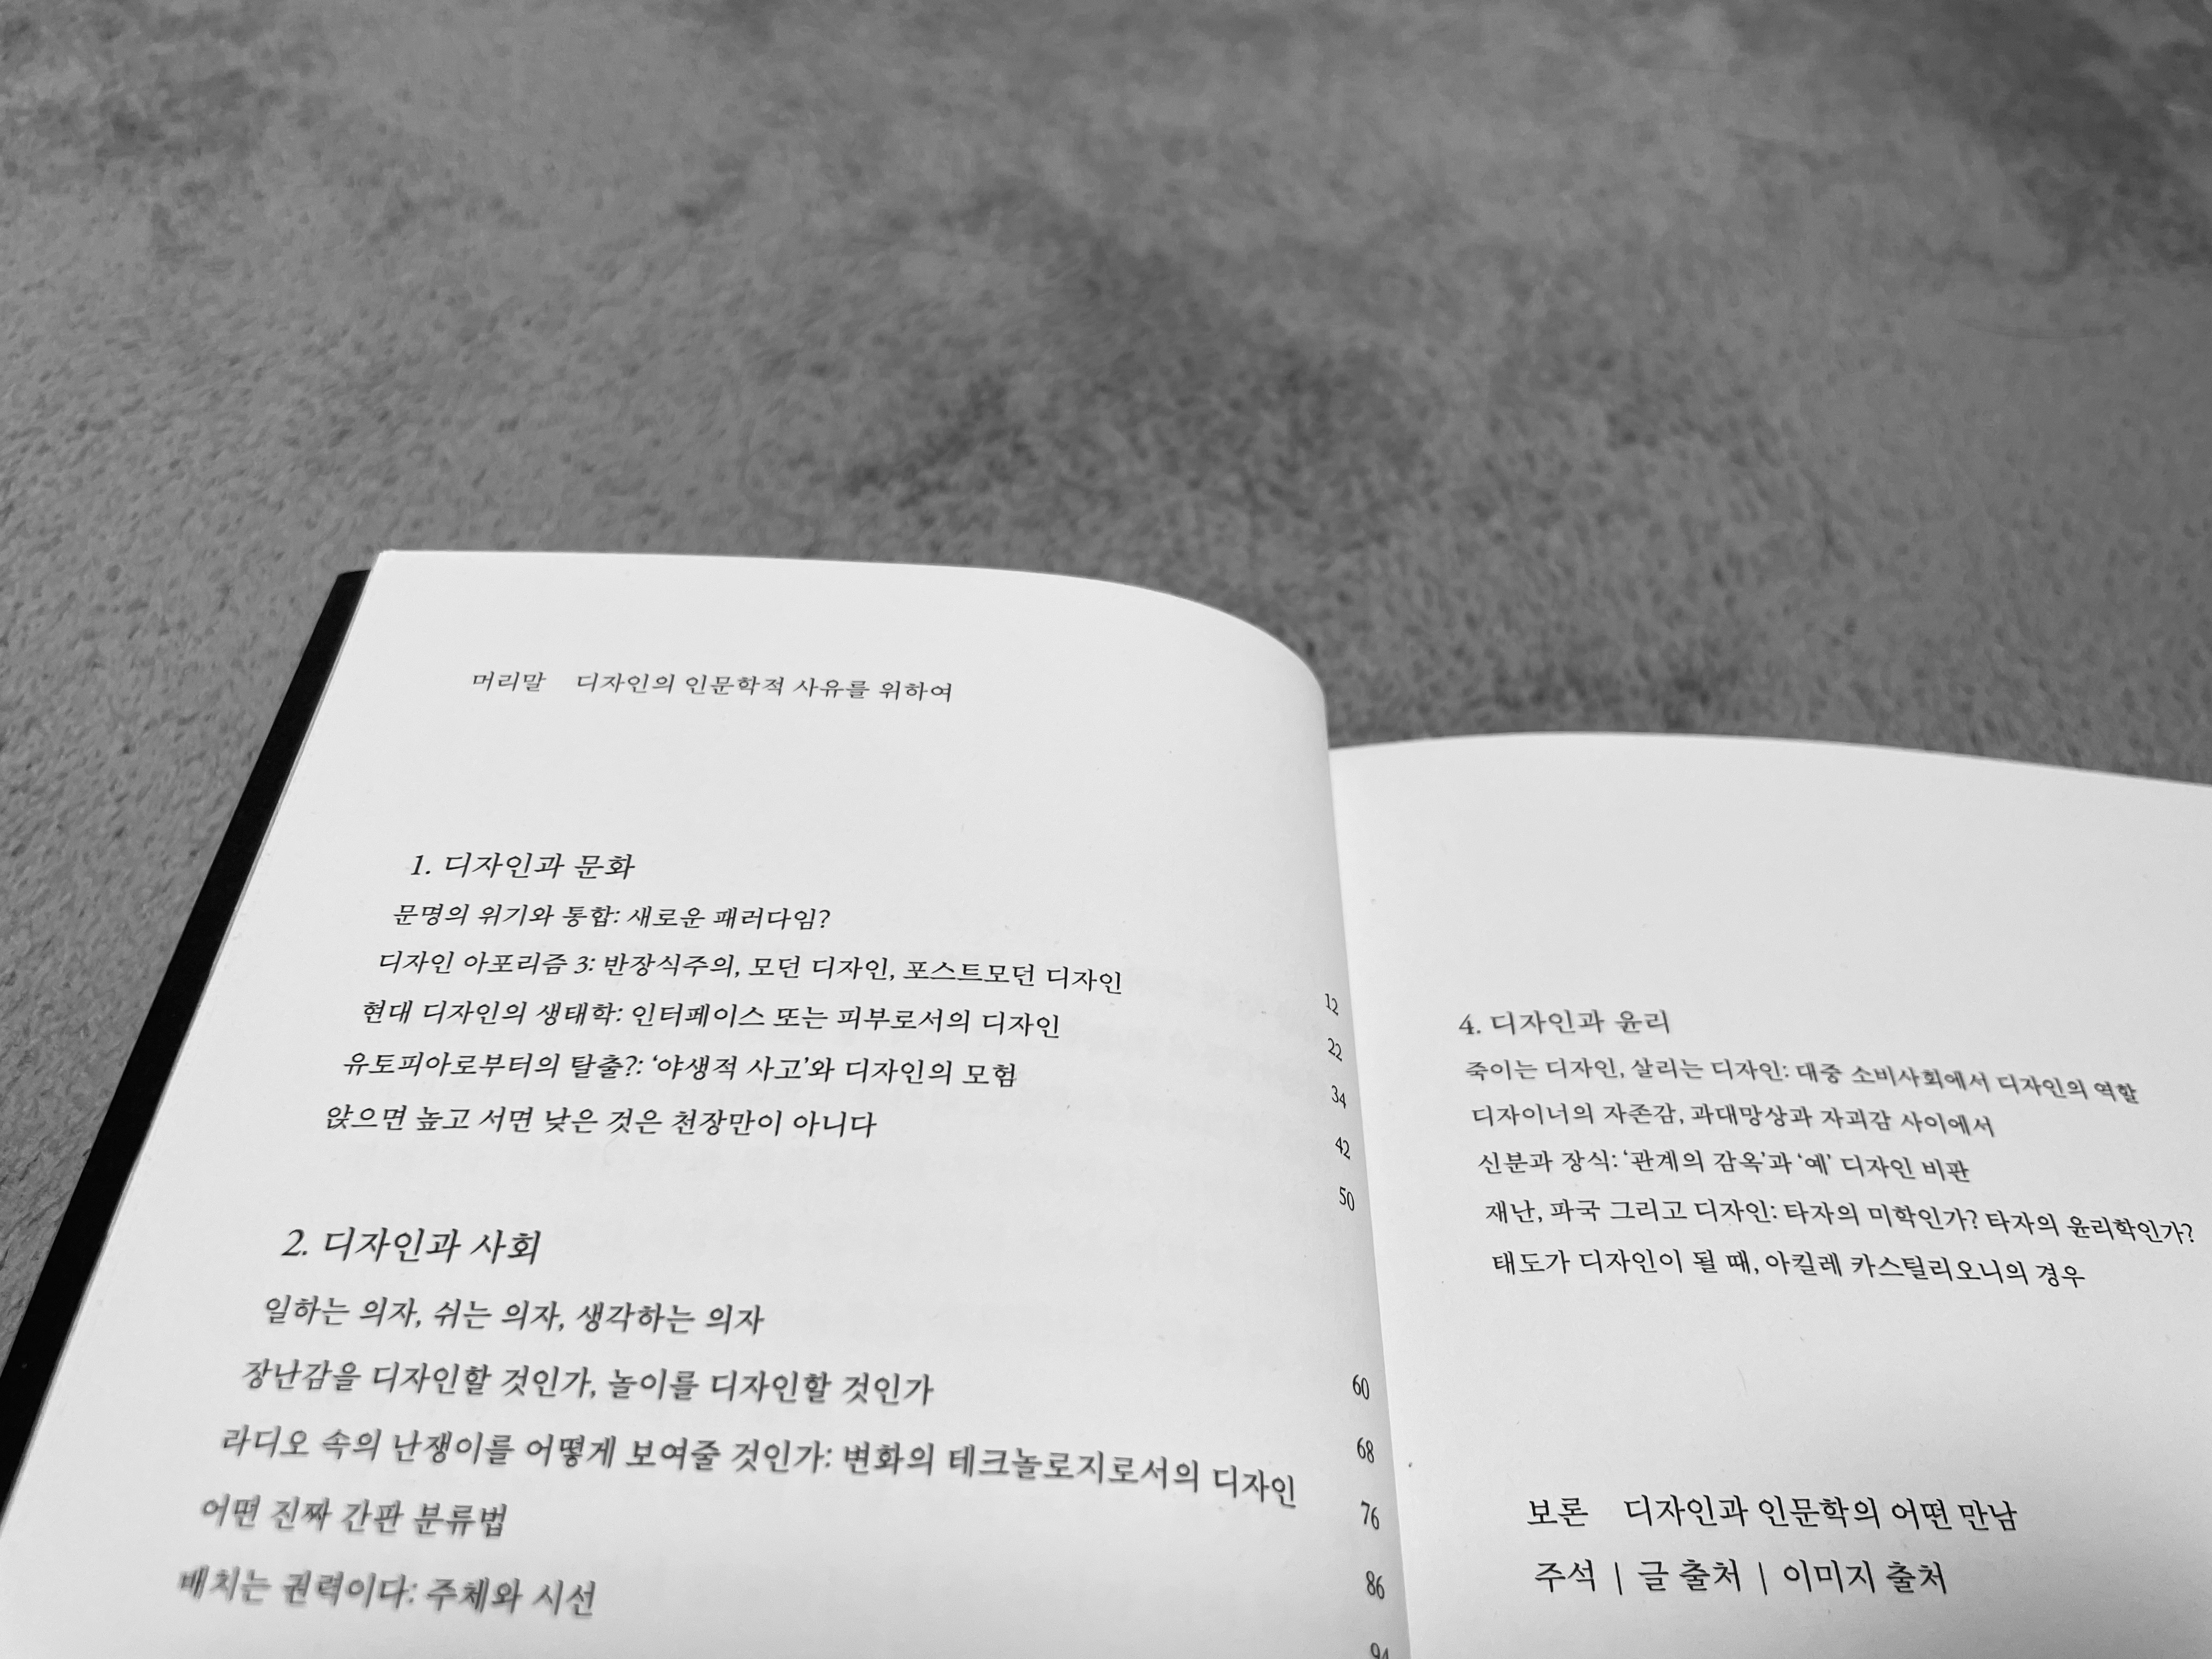 머리말 디자인의 인문학적 사유를 위하여
1. 디자인과 문화
문명의 위기와 통합: 새로운 패러다임?
디자인 아포리즘 3: 반장식주의, 모던 디자인, 포스트모던 디자인
12
현대 디자인의 생태학: 인터페이스 또는 피부로서의 디자인
22
유토피아로부터의 탈출?: ‘야생적 사고’와 디자인의 모험
34
앉으면 높고 서면 낮은 것은 천장만이 아니다
42
50
2. 디자인과 사회
일하는 의자, 쉬는 의자, 생각하는 의자
장난감을 디자인할 것인가, 놀이를 디자인할 것인가
60
라디오 속의 난쟁이를 어떻게 보여줄 것인가: 변화의 테크놀로지로서의 디자인
68
어떤 진짜 간판 분류법
76
배치는 권력이다: 주체와 시선
86
94
4. 디자인과 윤리
죽이는 디자인, 살리는 디자인: 대중 소비사회에서 디자인의 역할
디자이너의 자존감, 과대망상과 자괴감 사이에서
신분과 장식: ‘관계의 감옥’과 ‘예’ 디자인 비판
재난, 파국 그리고 디자인: 타자의 미학인가? 타자의 윤리학인가?
태도가 디자인이 될 때, 아킬레 카스틸리오니의 경우
보론 디자인과 인문학의 어떤 만남
주석 | 글 출처 | 이미지 출처